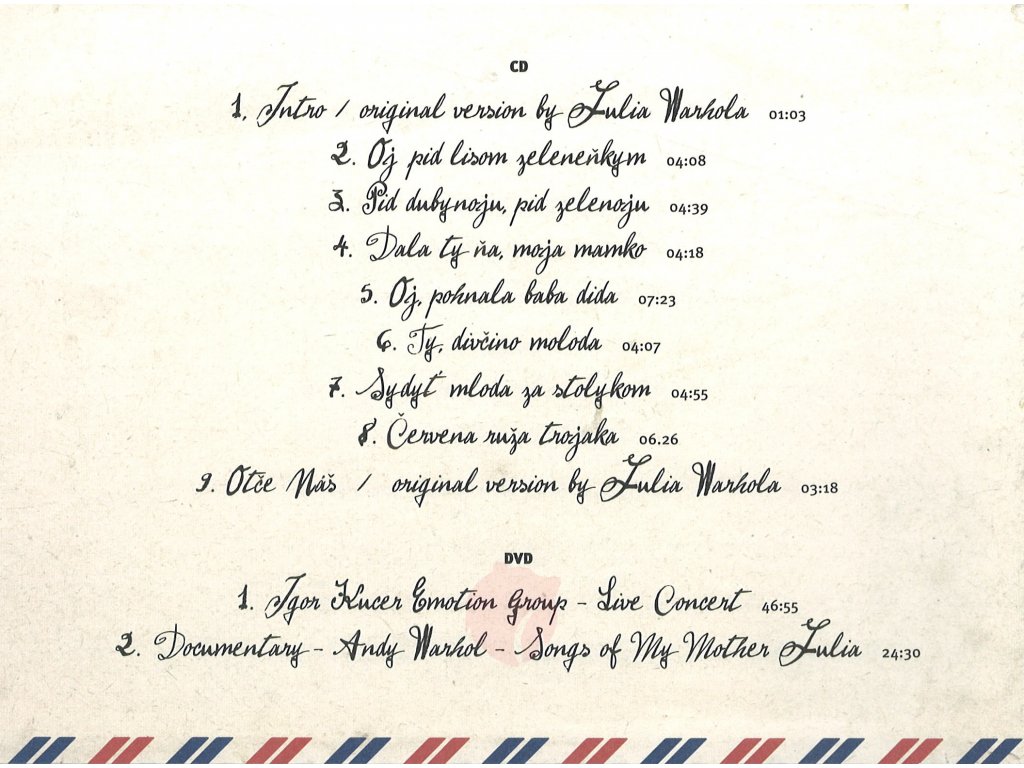 CD
1. Intro / original version by Julia Warhola 01:03
2. Oj pid lisom zeleneňkym 04:08
3. Pid dubynoju, pid zelenoju 04:39
4. Dala ty ňa, moja mamko 04:18
5. Oj, pohnala baba dida 07:23
6. Ty, divčino moloda 04:07
7. Sydyť mloda za stolykom 04:55
8. Červena ruža trojaka 06.26
9. Otče Náš / original version by Julia Warhola 03:18
DVD
1. Igor Kucer Emotion Group - Live Concert 46:55
2. Documentary - Andy Warhol - Songs of My Mother Julia 24:30